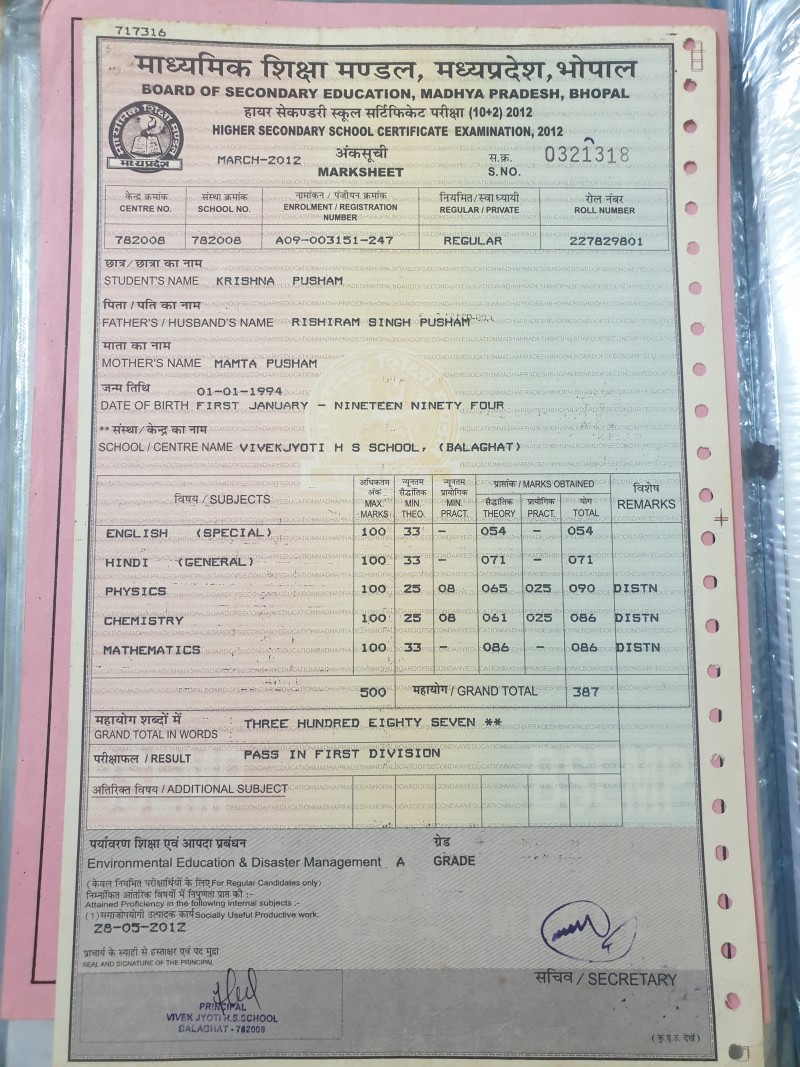 717316
माध्यमिक शिक्षा मण्डल, मध्यप्रदेश, भोपाल
BOARD OF SECONDARY EDUCATION, MADHYA PRADESH, BHOPAL
हायर सेकण्डरी स्कूल सर्टिफिकेट परीक्षा (10+2) 2012
HIGHER SECONDARY SCHOOL CERTIFICATE EXAMINATION, 2012
माध्यमिक शिक्षा मण्डल
मध्यप्रदेश
MARCH-2012 अंकसूची स.क्र. 0321318
MARKSHEET S.NO.
केन्द्र क्रमांक संस्था क्रमांक नामांकन / पंजीयन क्रमांक नियमित/स्वाध्यायी रोल नंबर
CENTRE NO. SCHOOL NO. ENROLMENT / REGISTRATION NUMBER REGULAR / PRIVATE ROLL NUMBER
782008 782008 A09-003151-247 REGULAR 227829801
छात्र / छात्रा का नाम
STUDENT'S NAME KRISHNA PUSHAM
पिता / पति का नाम
FATHER'S / HUSBAND'S NAME RISHIRAM SINGH PUSHAM
माता का नाम
MOTHER'S NAME MAMTA PUSHAM
जन्म तिथि 01-01-1994
DATE OF BIRTH FIRST JANUARY - NINETEEN NINETY FOUR
** संस्था/ केन्द्र का नाम
SCHOOL / CENTRE NAME VIVEKJYOTI H S SCHOOL, (BALAGHAT)
विषय / SUBJECTS अधिकतम अंक MAX. MARKS न्यूनतम सैद्धांतिक MIN. THEO. न्यूनतम प्रायोगिक MIN. PRACT. प्राप्तांक / MARKS OBTAINED विशेष REMARKS
सैद्धांतिक THEORY प्रायोगिक PRACT. योग TOTAL
ENGLISH (SPECIAL) 100 33 - 054 - 054
HINDI (GENERAL) 100 33 - 071 - 071
PHYSICS 100 25 08 065 025 090 DISTN
CHEMISTRY 100 25 08 061 025 086 DISTN
MATHEMATICS 100 33 - 086 - 086 DISTN
500 महायोग / GRAND TOTAL 387
महायोग शब्दों में : THREE HUNDRED EIGHTY SEVEN **
GRAND TOTAL IN WORDS
परीक्षाफल / RESULT : PASS IN FIRST DIVISION
अतिरिक्त विषय / ADDITIONAL SUBJECT
पर्यावरण शिक्षा एवं आपदा प्रबंधन ग्रेड
Environmental Education & Disaster Management A GRADE
(केवल नियमित परीक्षार्थियों के लिए/For Regular Candidates only)
निम्नांकित आंतरिक विषयों में निपुणता प्राप्त की :-
Attained Proficiency in the following internal subjects :-
(1) समाजोपयोगी उत्पादक कार्य/Socially Useful Productive work.
28-05-2012
प्राचार्य के स्याही से हस्ताक्षर एवं पद मुद्रा
SEAL AND SIGNATURE OF THE PRINCIPAL
सचिव / SECRETARY
PRINCIPAL
VIVEK JYOTI H.S.SCHOOL
BALAGHAT - 782008
(कृ.पृ.उ. देखें)